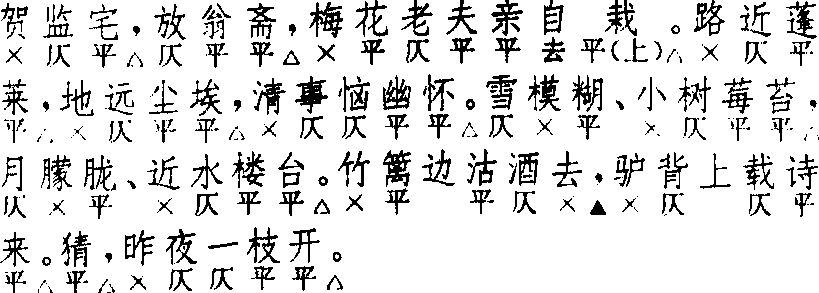 贺监宅，放翁斋，梅花老夫亲自栽。路近蓬
×仄平△仄平平△×平仄平平去平(上)△×仄平
莱，地远尘埃，清事恼幽怀。雪模糊、小树莓苔，
平△×仄平平△×仄仄平平△仄×平×仄平平△
月朦胧、近水楼台。竹篱边沽酒去，驴背上载诗
仄×平×仄平平△×平平仄×▲×仄仄平
来。猜，昨夜一枝开。
平△平△×仄仄平平△